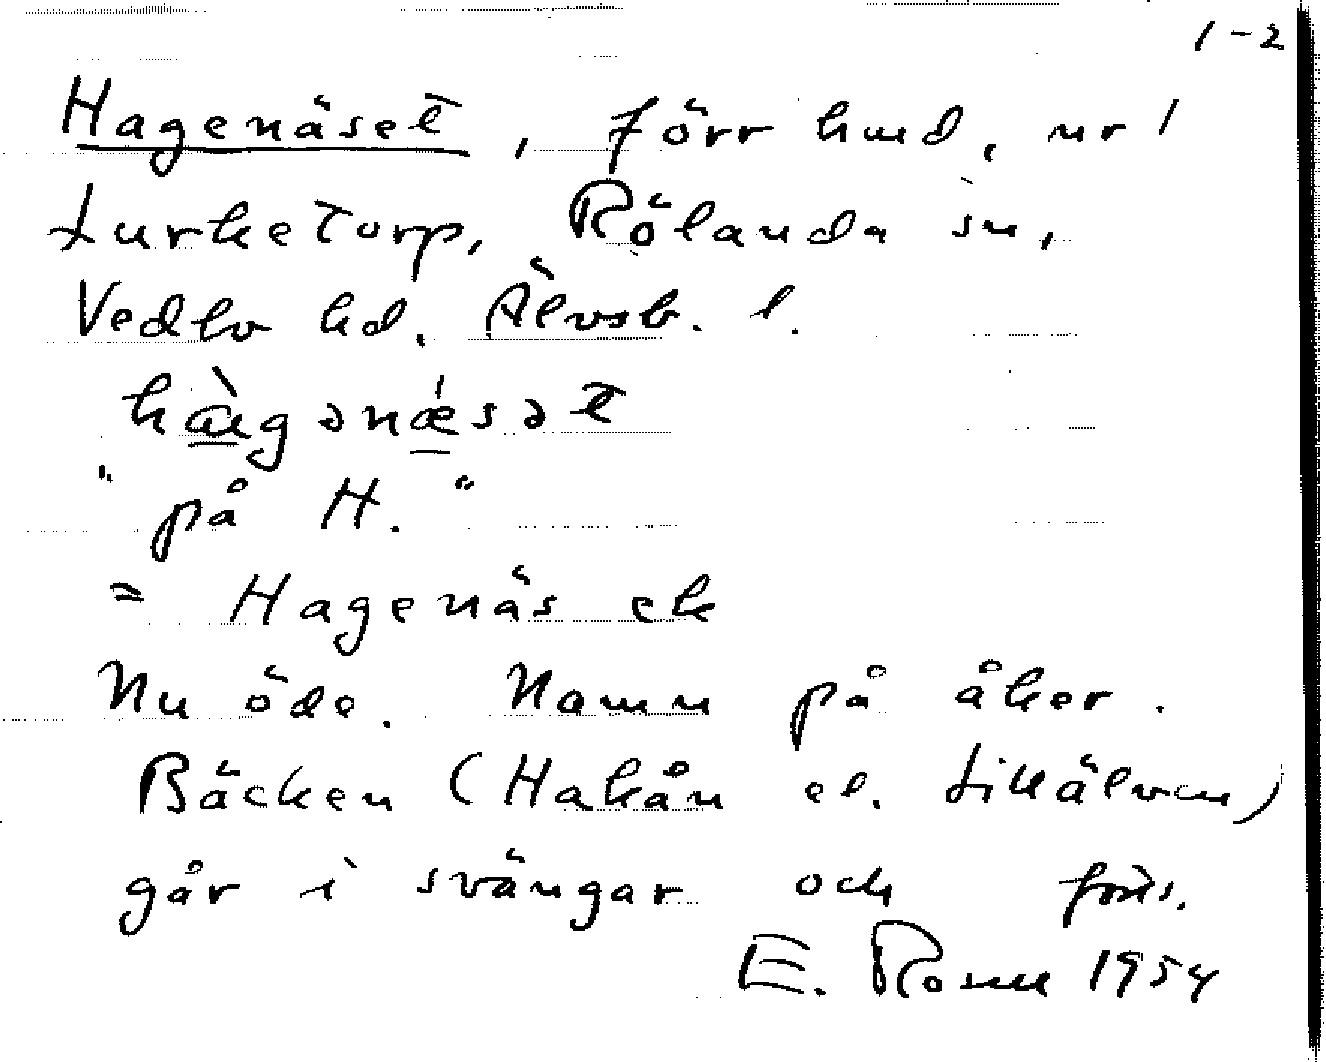 1-2
Hagenäset, förr hmd, nr 1
Lurketorp, Rölanda sn,
Vedbo hd. Älvsb. l.
hàgənǽsət
"på H."
= Hagenäs ek
Nu öde. Namn på åker.
Bäcken (Hakån el. Lillälven)
går i svängar och forts.
E. Rosell 1954